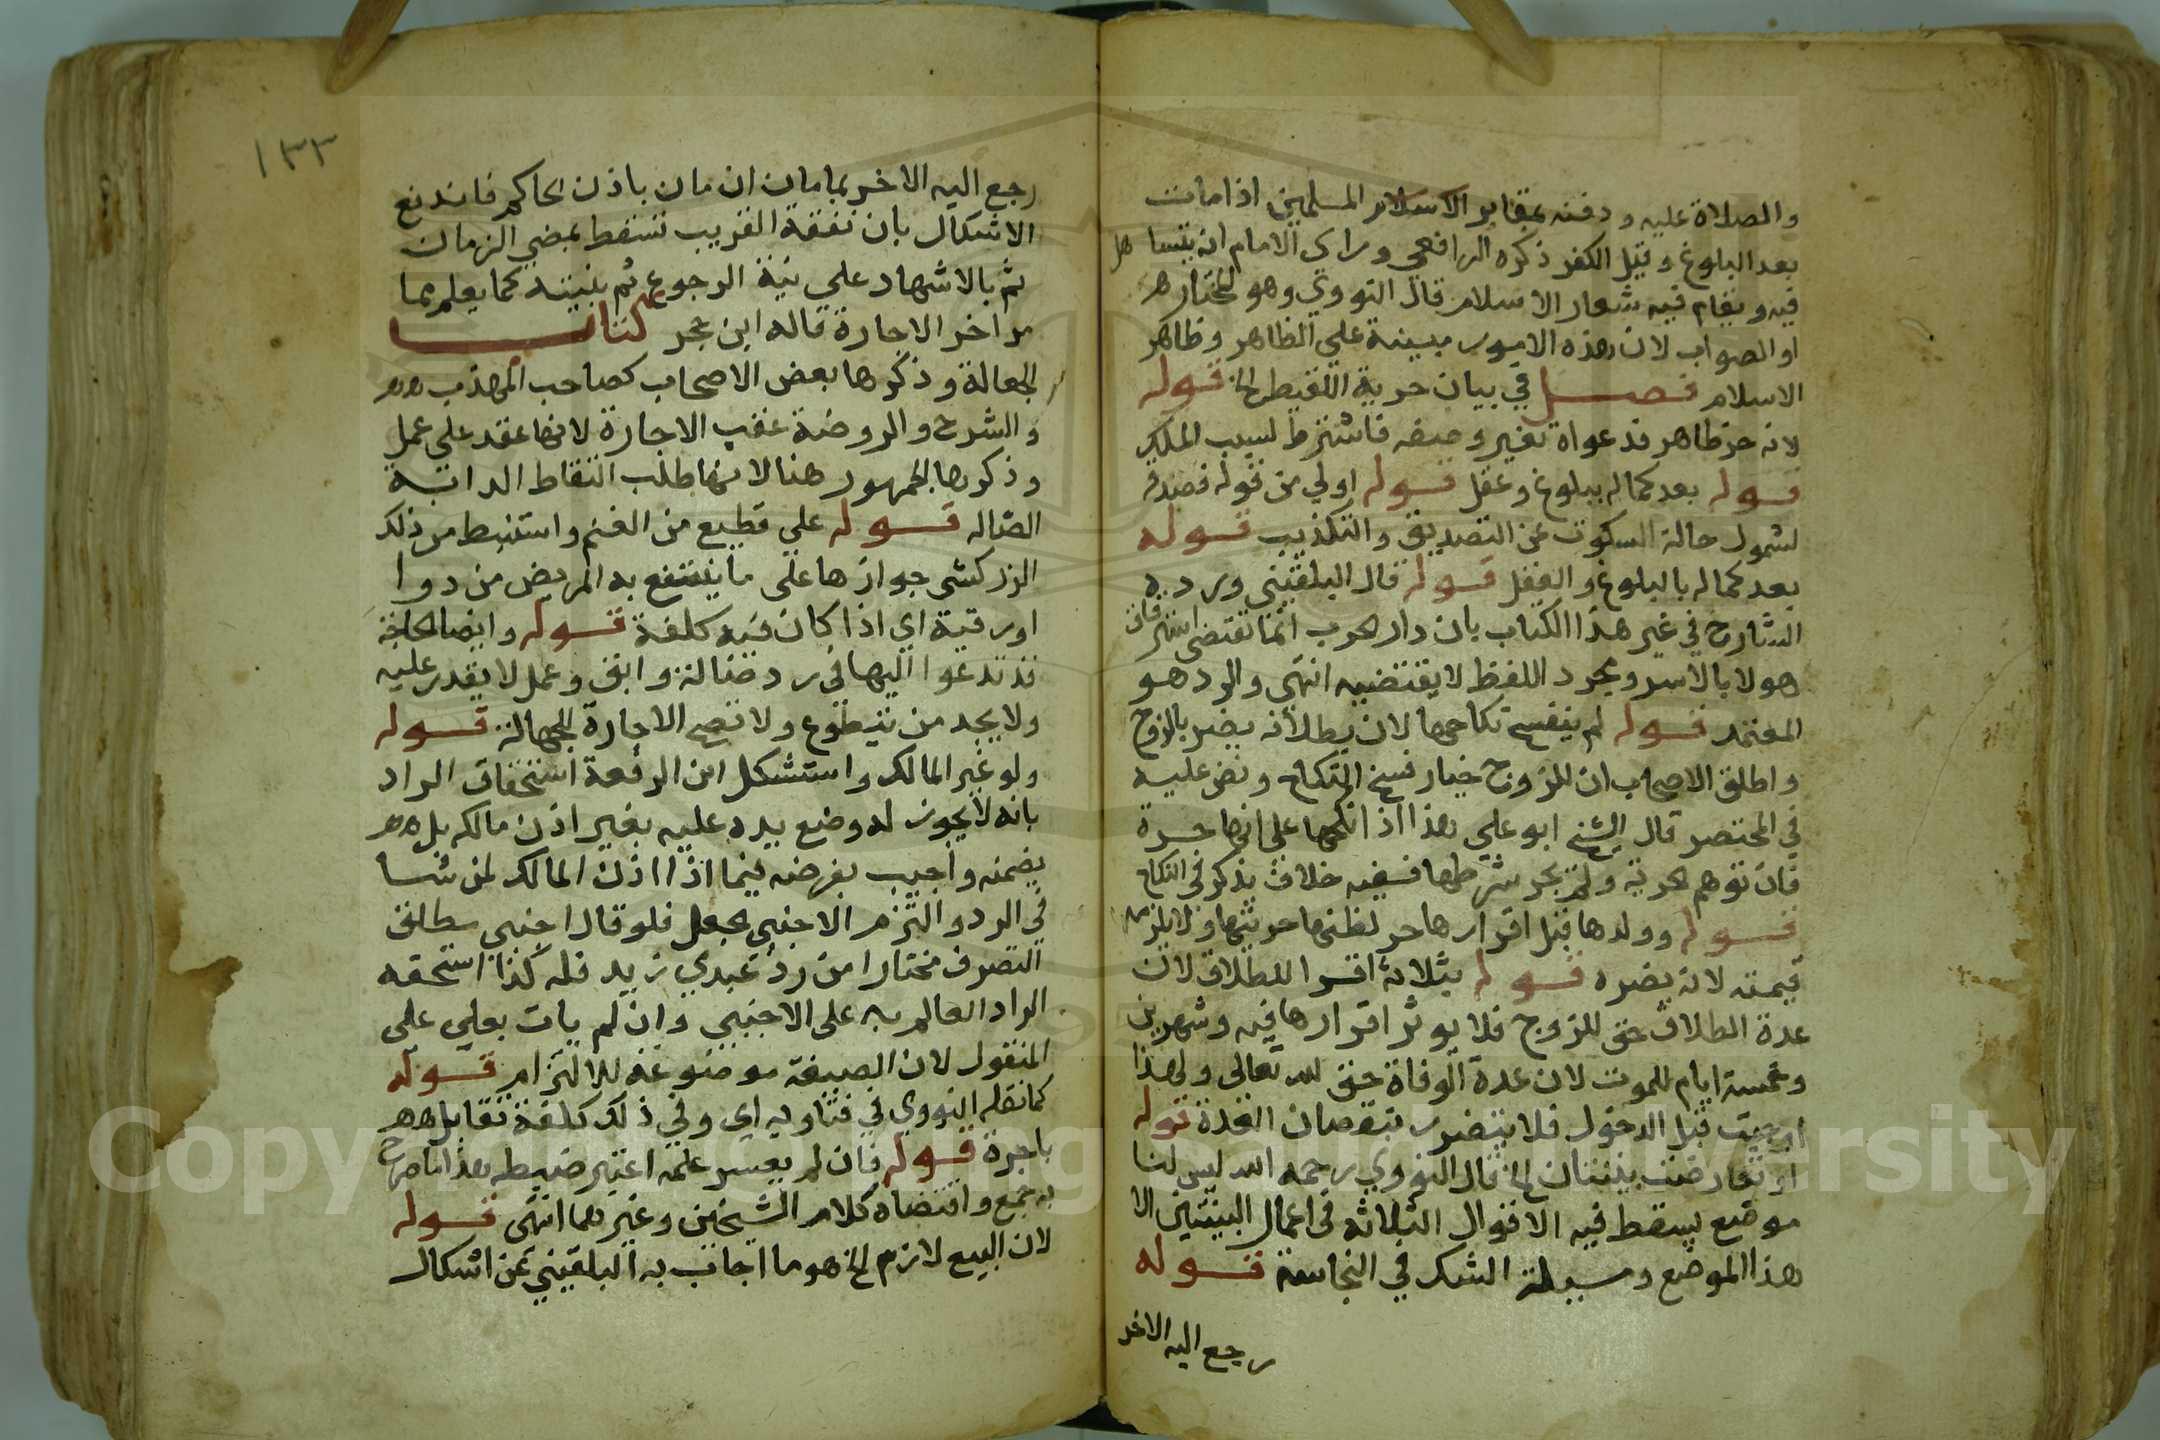 والصلاة عليه ودفنه بمقابر الاسلام المسلمين اذا مات
بعد البلوغ وقبل الكفر ذكره الرافعي وراى الامام انه يتسا هل
فيه ويقام فيه شعار الاسلام قال النووي وهو المختار
او الصواب لان هذه الامور مبينة علي الظاهر وظاهر
الاسلام فصل في بيان حرية اللقيط الخ قوله
لانه حر ظاهر فدعواه تغير وصفه فاشترط لسبب الملك
قوله بعد كماله ببلوغ وعقل قوله اولي من قوله فصدقه
لشمول حالة السكوت عن التصديق والتكذيب قوله
بعد كماله بالبلوغ والعقل قوله قال البلقيني ورده
الشارح في غير هذا الكتاب بان دار الحرب انما تقتضي استرقاق
هولا بالاسر ومجرد اللفظ لا يقتضيه انتهى والرد هو
المعتمد قوله لم ينفسخ نكاحها لان بطلانه يضر بالزوج
واطلق الاصحاب ان للزوج خيار فسخ النكاح ونص عليه
في المختصر قال الشيخ ابو علي هذا اذا نكحها على انها حرة
فان توهم الحرية ولم يجر شرطها ففيه خلاف يذكر في النكاح
قوله وولدها قبل اقرارها حر لظنها حريتها ولا يلزمه
قيمته لانه يضره قوله بثلاثة اقرا للطلاق لان
عدة الطلاق حق للزوج فلا يوثر اقرارها فيه وشهرين
وخمسة ايام للموت لان عدة الوفاة حق لله تعالى ولهذا
اوجبت قبل الدخول فلا يتضرر بنقصان العدة قوله
او تعارضت بينتان الخ قال النووي رحمه الله ليس لنا
موضع يسقط فيه الاقوال الثلاثة في اعمال البينتين الا
هذا الموضع ومسيلة الشك في النجاسة قوله
رجع اليه الاخر
١٣٣
رجع اليه الاخر بما مان ان مان باذن الحاكم فاندفع
الاشكال بان نفقة القريب تسقط بمضي الزمان
ثم بالاشهاد علي نية الرجوع ثم بنيته كما يعلم مما
مر اخر الاجارة قاله ابن حجر كتاب
الجعالة وذكرها بعض الاصحاب كصاحب المهذب
والشرح والروضة عقب الاجارة لانها عقد علي عمل
وذكرها الجمهور هنا لانها طلب التقاط الدابة
الضاله قوله علي قطيع من الغنم واستنبط من ذلك
الزركشي جوازها على ما ينتفع به المريض من دوا
او رقية اي اذا كان فيه كلفة قوله وايضا الحاجة
قد تدعوا اليها في رد ضالة وابق وعمل لا يقدر عليه
ولا يجد من يتطوع ولا تصح الاجارة للجهالة قوله
ولو غير المالك واستشكل ابن الرفعة استحقاق الراد
بانه لا يجوز له وضع يده عليه بغير اذن مالكه بل
يضمنه واجيب بفرضه فيما اذا اذن المالك لمن شا
في الرد والتزم الاجنبي بجعل فلو قال اجنبي مطلق
التصرف مختارا من رد عبدي زيد فله كذا استحقه
الراد العالم به على الاجنبي وان لم يات بعلي على
المنقول لان الصيغة موضوعة للالتزام قوله
كما نقله النووي في فتاويه اي وفي ذلك كلفة تقابل
باجرة قوله فان لم يعسر علمه اعتبر ضبطه هذا ما صرح
به جمع واقتضاه كلام الشيخين وغيرهما انتهى قوله
لان البيع لازم الخ هو ما اجاب به البلقيني عن اشكال
Copyright © King Saud University